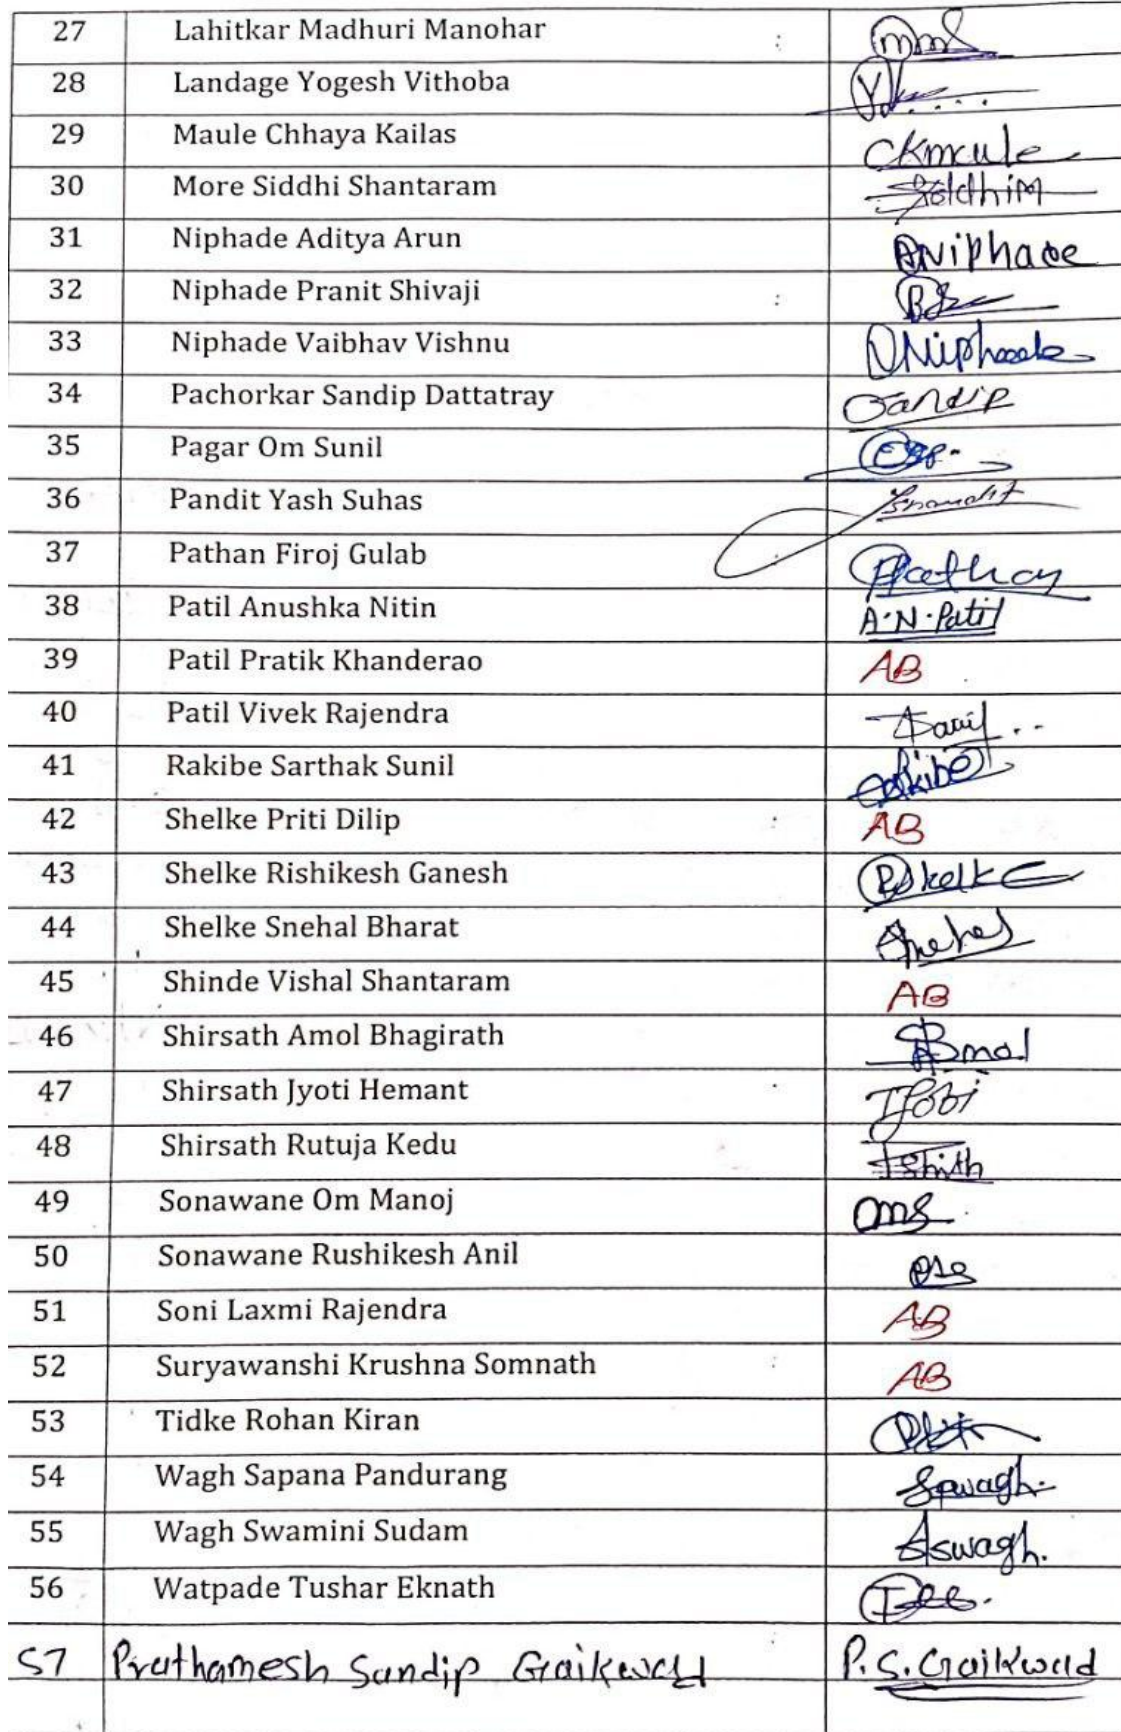 27 Lahitkar Madhuri Manohar
28 Landage Yogesh Vithoba
29 Maule Chhaya Kailas CKmaule
30 More Siddhi Shantaram SiddhiM
31 Niphade Aditya Arun ANiphade
32 Niphade Pranit Shivaji
33 Niphade Vaibhav Vishnu VNiphade
34 Pachorkar Sandip Dattatray Sandip
35 Pagar Om Sunil
36 Pandit Yash Suhas
37 Pathan Firoj Gulab FPathan
38 Patil Anushka Nitin A.N.Patil
39 Patil Pratik Khanderao AB
40 Patil Vivek Rajendra
41 Rakibe Sarthak Sunil
42 Shelke Priti Dilip AB
43 Shelke Rishikesh Ganesh
44 Shelke Snehal Bharat Snehal
45 Shinde Vishal Shantaram AB
46 Shirsath Amol Bhagirath
47 Shirsath Jyoti Hemant
48 Shirsath Rutuja Kedu
49 Sonawane Om Manoj OMS
50 Sonawane Rushikesh Anil
51 Soni Laxmi Rajendra AB
52 Suryawanshi Krushna Somnath AB
53 Tidke Rohan Kiran
54 Wagh Sapana Pandurang Spwagh.
55 Wagh Swamini Sudam Sswagh.
56 Watpade Tushar Eknath
57 Prathamesh Sandip Gaikwad P.S.Gaikwad